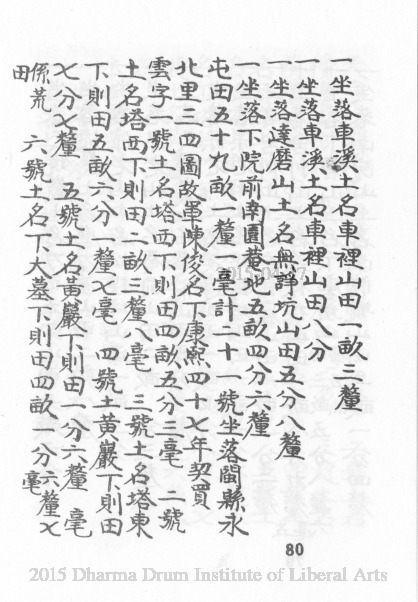 一坐落車溪土名車裡山田一畝三釐
一坐落車溪土名車裡山田八分
一坐落達磨山土名無詳坑山田五分八釐
一坐落下院前南園巷地五畝四分六釐
屯田五十九畝一釐一毫計二十一號坐落閩縣永
北里三四圖故軍陳俊名下康熙四十七年契買
雲字一號土名塔西下則田四畝五分三毫 二號
土名塔西下則田二畝三釐八毫 三號土名塔東
下則田五畝六分一釐七毫 四號土黃巖下則田
七分七釐 五號土名黃巖下則田一分六釐 毫
係荒田 六號土名下大墓下則田四畝一分六釐七毫
80
2015 Dharma Drum Institute of Liberal Arts